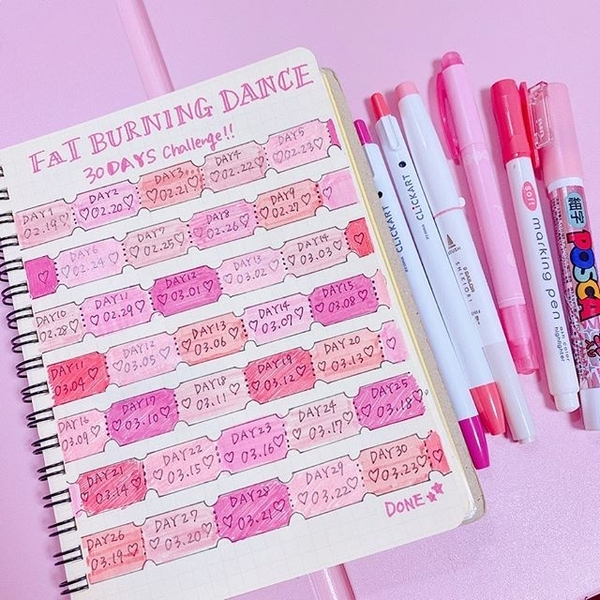 FAT BURNING DANCE
30 DAYS Challenge!!
DAY1 DAY2 DAY3 DAY4 DAY5
02.19 02.20 02.21 02.22 02.23
DAY6 DAY7 DAY8 DAY9
02.24 02.25 02.26 02.27
DAY10 DAY11 DAY12 DAY13 DAY14
02.28 02.29 03.01 03.02 03.03
DAY11 DAY12 DAY13 DAY14 DAY15
03.04 03.05 03.06 03.07 03.08
DAY16 DAY17 DAY18 DAY19 DAY20
03.09 03.10 03.11 03.12 03.13
DAY21 DAY22 DAY23 DAY24 DAY25
03.14 03.15 03.16 03.17 03.18
DAY26 DAY27 DAY28 DAY29 DAY30
03.19 03.20 03.21 03.22 03.23
DONE
CLICKART
CLICKART
soil
marking pen
highlighter
uni
細字
POSCA